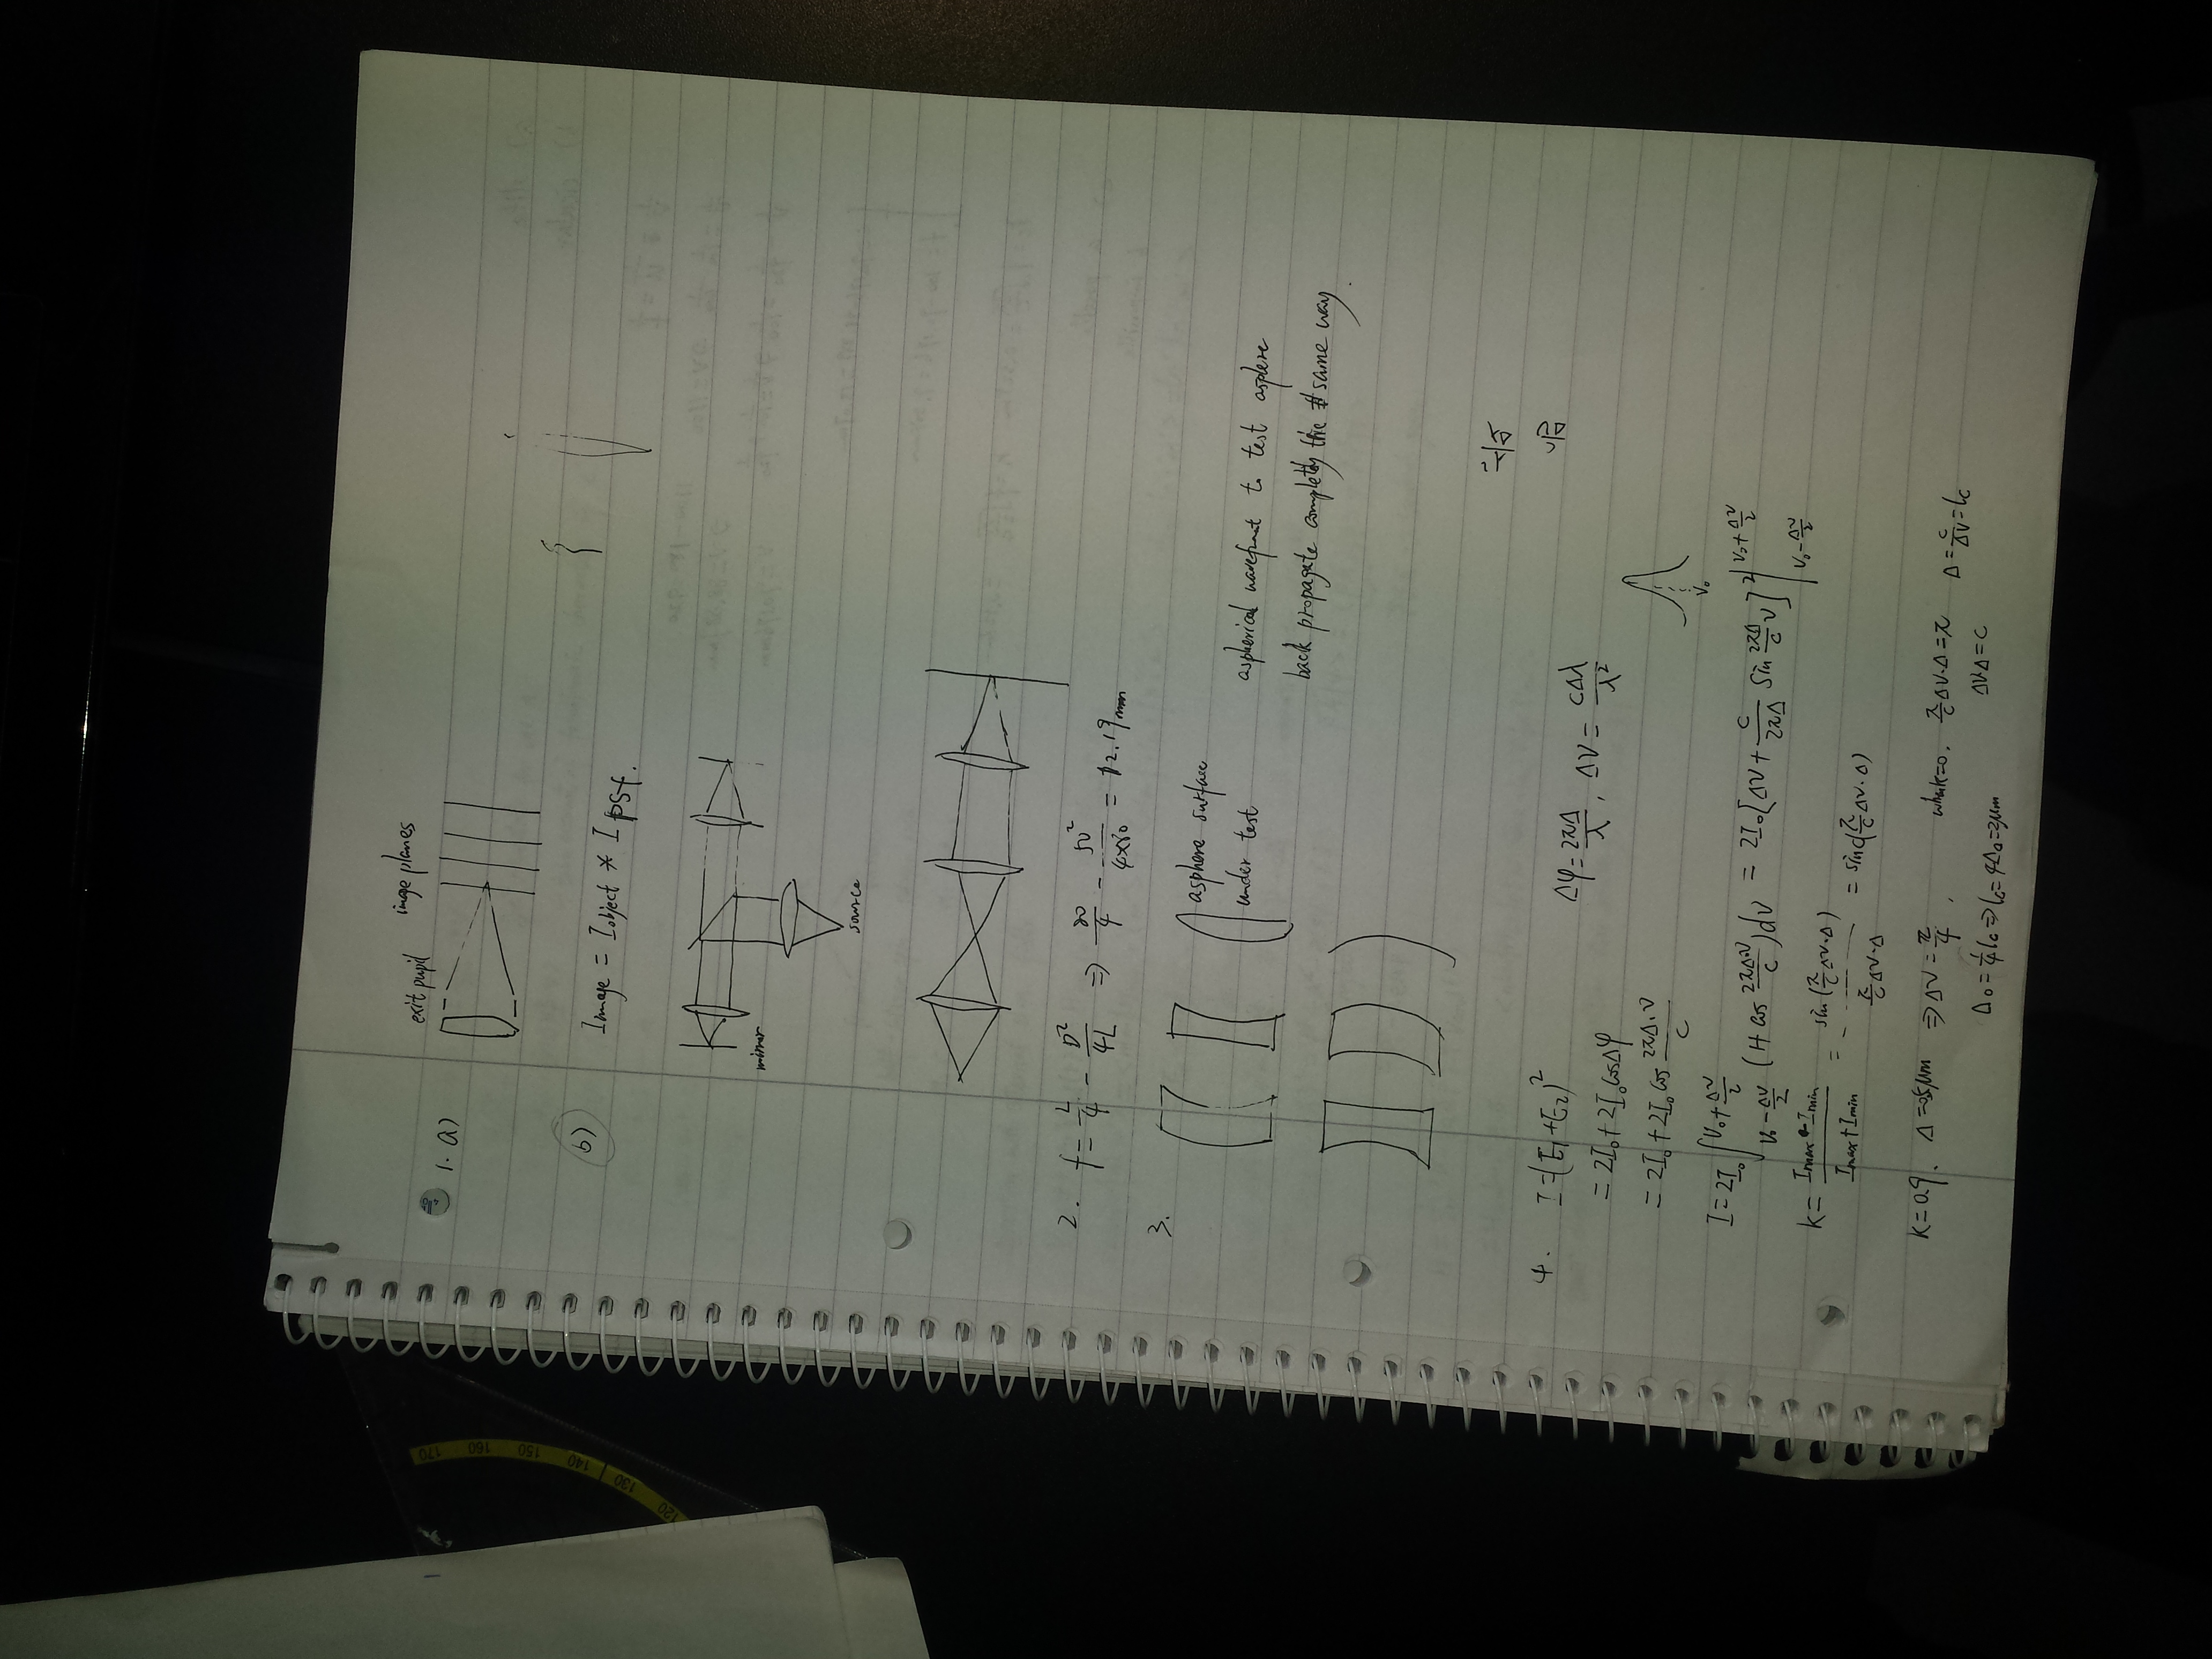 1. a)
exit pupil
image planes
b)
Image = Iobject * Ipsf.
mirror
source
2. f = L/4 - D²/4L ⇒ 80/4 - 50²/4×80 = 12.19mm
3.
asphere surface
under test
aspherical wavefront to test asphere
back propagate completly the same way.
4. I = (E₁+E₂)²
= 2I₀ + 2I₀ cosΔφ
Δφ = 2πΔ/λ, ΔV = CΔλ/λ²
= 2I₀ + 2I₀ cos 2πΔ·V/C
V₀
I = 2I₀ ∫_{V₀-ΔV/2}^{V₀+ΔV/2} (1+cos 2πΔ·V/C) dV = 2I₀ [ΔV + C/2πΔ sin 2πΔ/C V] |_{V₀-ΔV/2}^{V₀+ΔV/2}
k = Imax - Imin / Imax + Imin = sin(π/C ΔV·Δ) / π/C ΔV·Δ = sinc(π/C ΔV·Δ)
k=0.9, Δ=0.5μm ⇒ ΔV = π/4,
when k=0, π/C ΔV·Δ = π
Δ = C/ΔV = lc
Δ₀ = 1/4 lc ⇒ lc = 4Δ₀ = 2μm
ΔV·Δ = C
120 130 140 150 160 170